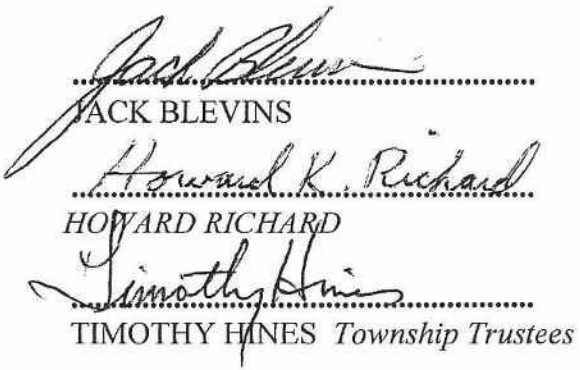 Jack Blevins
JACK BLEVINS
Howard K. Richard
HOWARD RICHARD
Timothy Hines
TIMOTHY HINES Township Trustees